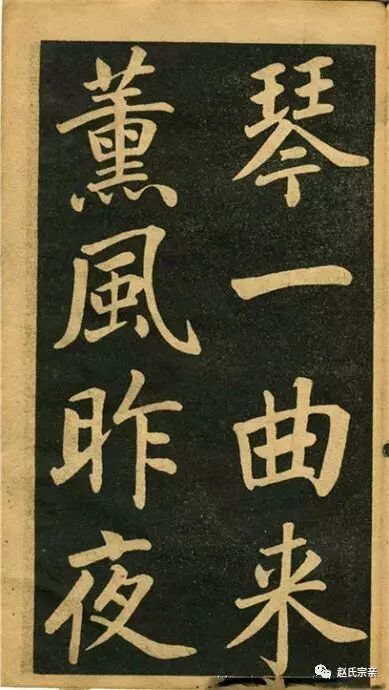 琴一曲来
薰風昨夜
赵氏宗亲